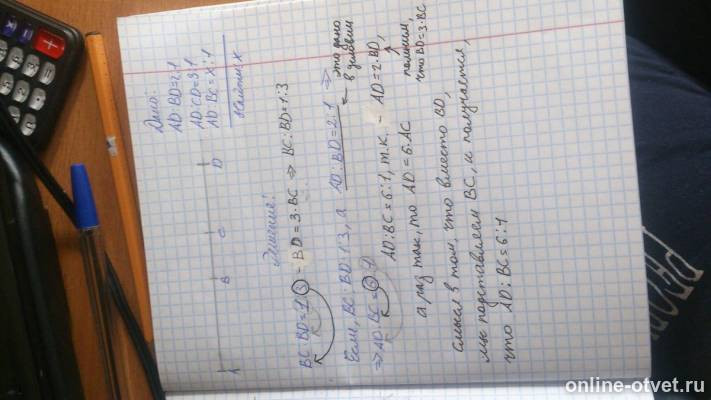 Дано:
AD:BD=2:1
AD:CD=3:1
AD:BC=X:1
Найти X
A B C D
Решение:
BC:BD=1:3 – BD=3·BC ⇒ BC:BD=1:3
Если, BC:BD=1:3, а AD:BD=2:1 ⇒
это дано
в условии
⇒ AD:BC=6:1
AD:BC=6:1, т.к. – AD=2·BD,
помним,
что BD=3·BC
а раз так, то AD=6·AC
смысл в том, что вместо BD,
мы подставляем BC, и получается,
что AD:BC=6:1
online-otvet.ru